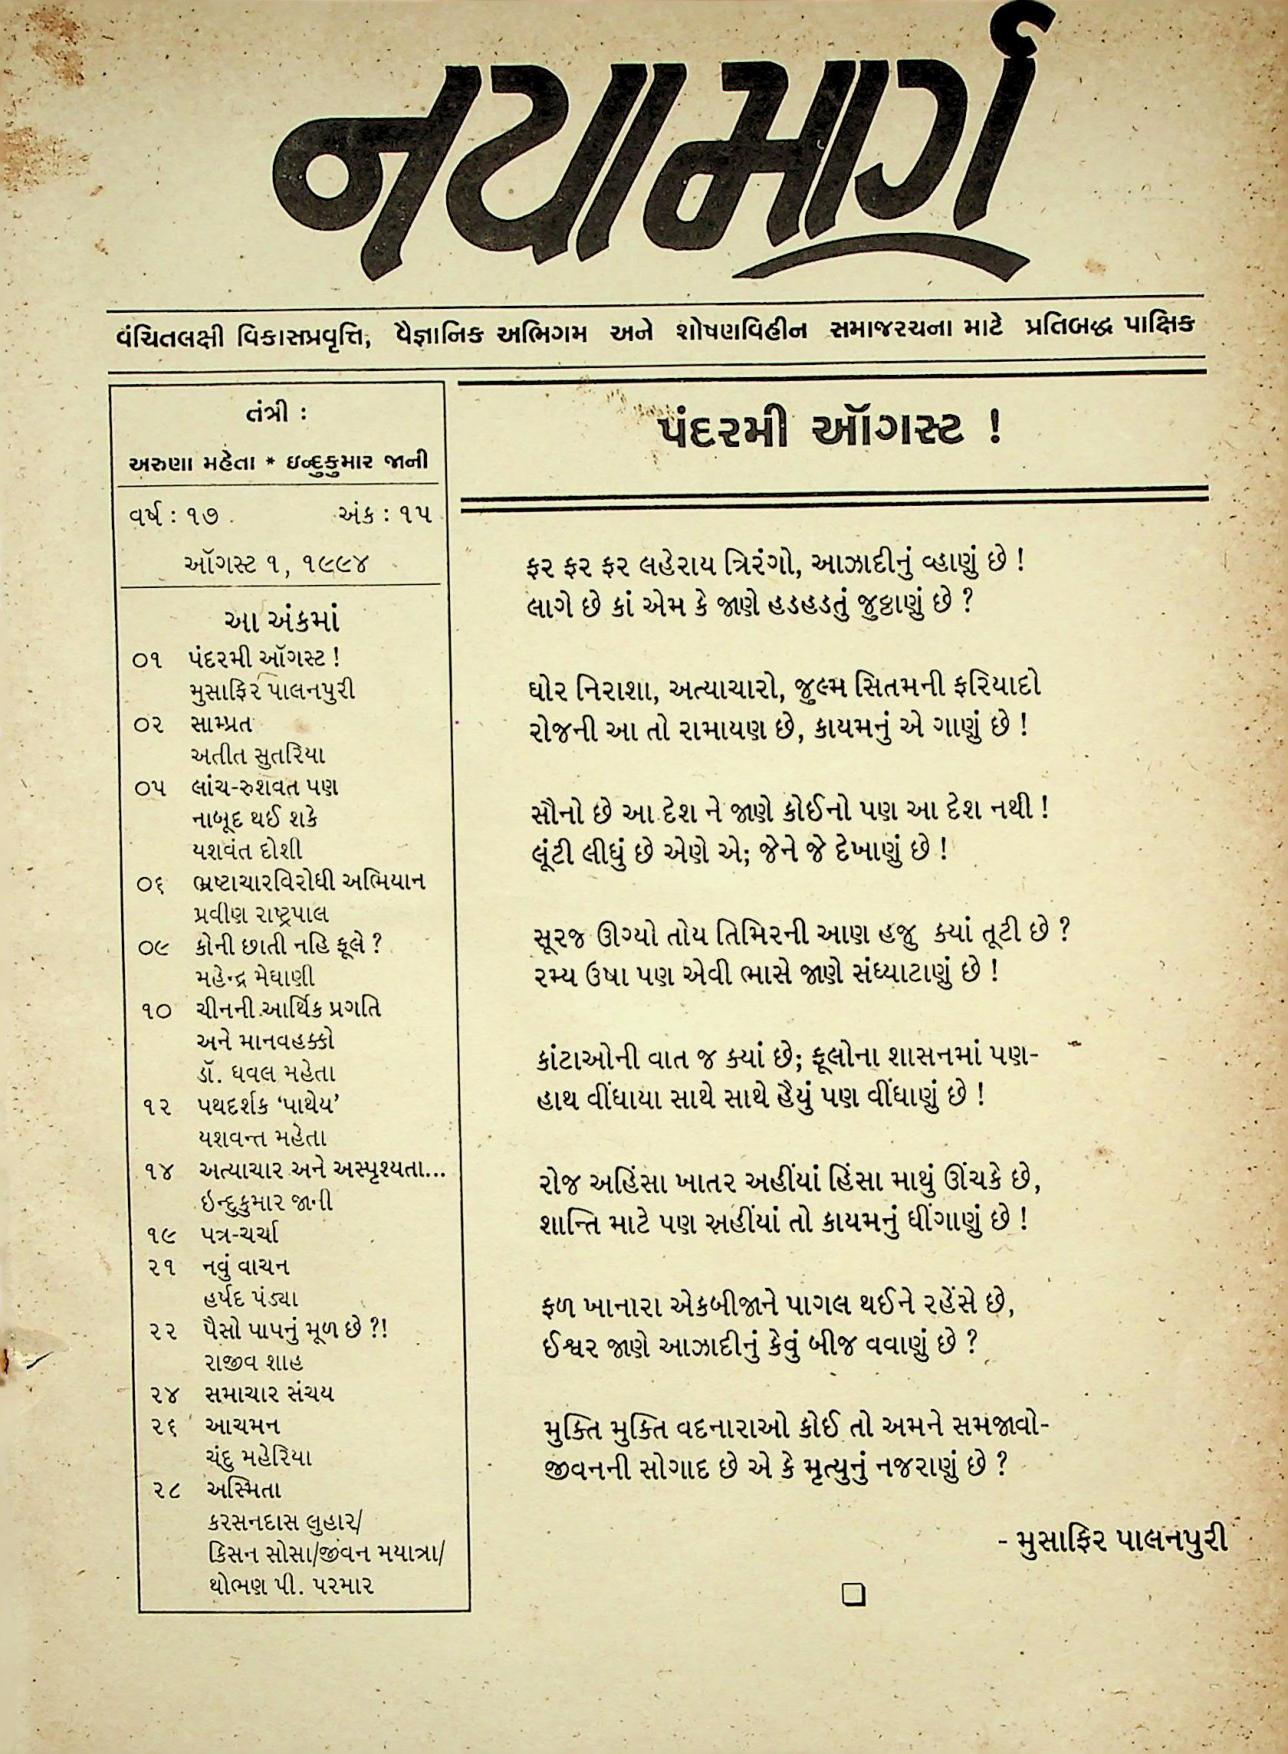 નયામાર્ગ
વંચિતલક્ષી વિકાસપ્રવૃત્તિ, વૈજ્ઞાનિક અભિગમ અને શોષણવિહીન સમાજરચના માટે પ્રતિબદ્ધ પાક્ષિક
તંત્રી :
અરુણા મહેતા * ઇન્દુકુમાર જાની
વર્ષ : ૧૭ અંક : ૧૫
ઑગસ્ટ ૧, ૧૯૯૪
આ અંકમાં
૦૧ પંદરમી ઑગસ્ટ !
મુસાફિર પાલનપુરી
૦૨ સામ્પ્રત
અતીત સુતરિયા
૦૫ લાંચ-રુશવત પણ
નાબૂદ થઈ શકે
યશવંત દોશી
૦૬ ભ્રષ્ટાચારવિરોધી અભિયાન
પ્રવીણ રાષ્ટ્રપાલ
૦૯ કોની છાતી નહિ ફૂલે ?
મહેન્દ્ર મેઘાણી
૧૦ ચીનની આર્થિક પ્રગતિ
અને માનવહક્કો
ડૉ. ધવલ મહેતા
૧૨ પથદર્શક ‘પાથેય’
યશવન્ત મહેતા
૧૪ અત્યાચાર અને અસ્પૃશ્યતા...
ઇન્દુકુમાર જાની
૧૯ પત્ર-ચર્ચા
૨૧ નવું વાચન
હર્ષદ પંડ્યા
૨૨ પૈસો પાપનું મૂળ છે ?!
રાજીવ શાહ
૨૪ સમાચાર સંચય
૨૬ આચમન
ચંદુ મહેરિયા
૨૮ અસ્મિતા
કરસનદાસ લુહાર/
કિસન સોસા/જીવન મયાત્રા/
થોભણ પી. પરમાર
પંદરમી ઑગસ્ટ !
ફર ફર ફર લહેરાય ત્રિરંગો, આઝાદીનું વ્હાણું છે !
લાગે છે કાં એમ કે જાણે હડહડતું જુઠ્ઠાણું છે ?
ઘોર નિરાશા, અત્યાચારો, જુલ્મ સિતમની ફરિયાદો
રોજની આ તો રામાયણ છે, કાયમનું એ ગાણું છે !
સૌનો છે આ દેશ ને જાણે કોઈનો પણ આ દેશ નથી !
લૂંટી લીધું છે એણે એ; જેને જે દેખાણું છે !
સૂરજ ઊગ્યો તોય તિમિરની આણ હજુ ક્યાં તૂટી છે ?
રમ્ય ઉષા પણ એવી ભાસે જાણે સંધ્યાટાણું છે !
કાંટાઓની વાત જ ક્યાં છે; ફૂલોના શાસનમાં પણ-
હાથ વીંધાયા સાથે સાથે હૈયું પણ વીંધાણું છે !
રોજ અહિંસા ખાતર અહીંયાં હિંસા માથું ઊંચકે છે,
શાન્તિ માટે પણ અહીંયાં તો કાયમનું ધીંગાણું છે !
ફળ ખાનારા એકબીજાને પાગલ થઈને રહેંસે છે,
ઈશ્વર જાણે આઝાદીનું કેવું બીજ વવાણું છે ?
મુક્તિ મુક્તિ વદનારાઓ કોઈ તો અમને સમજાવો-
જીવનની સોગાદ છે એ કે મૃત્યુનું નજરાણું છે ?
- મુસાફિર પાલનપુરી